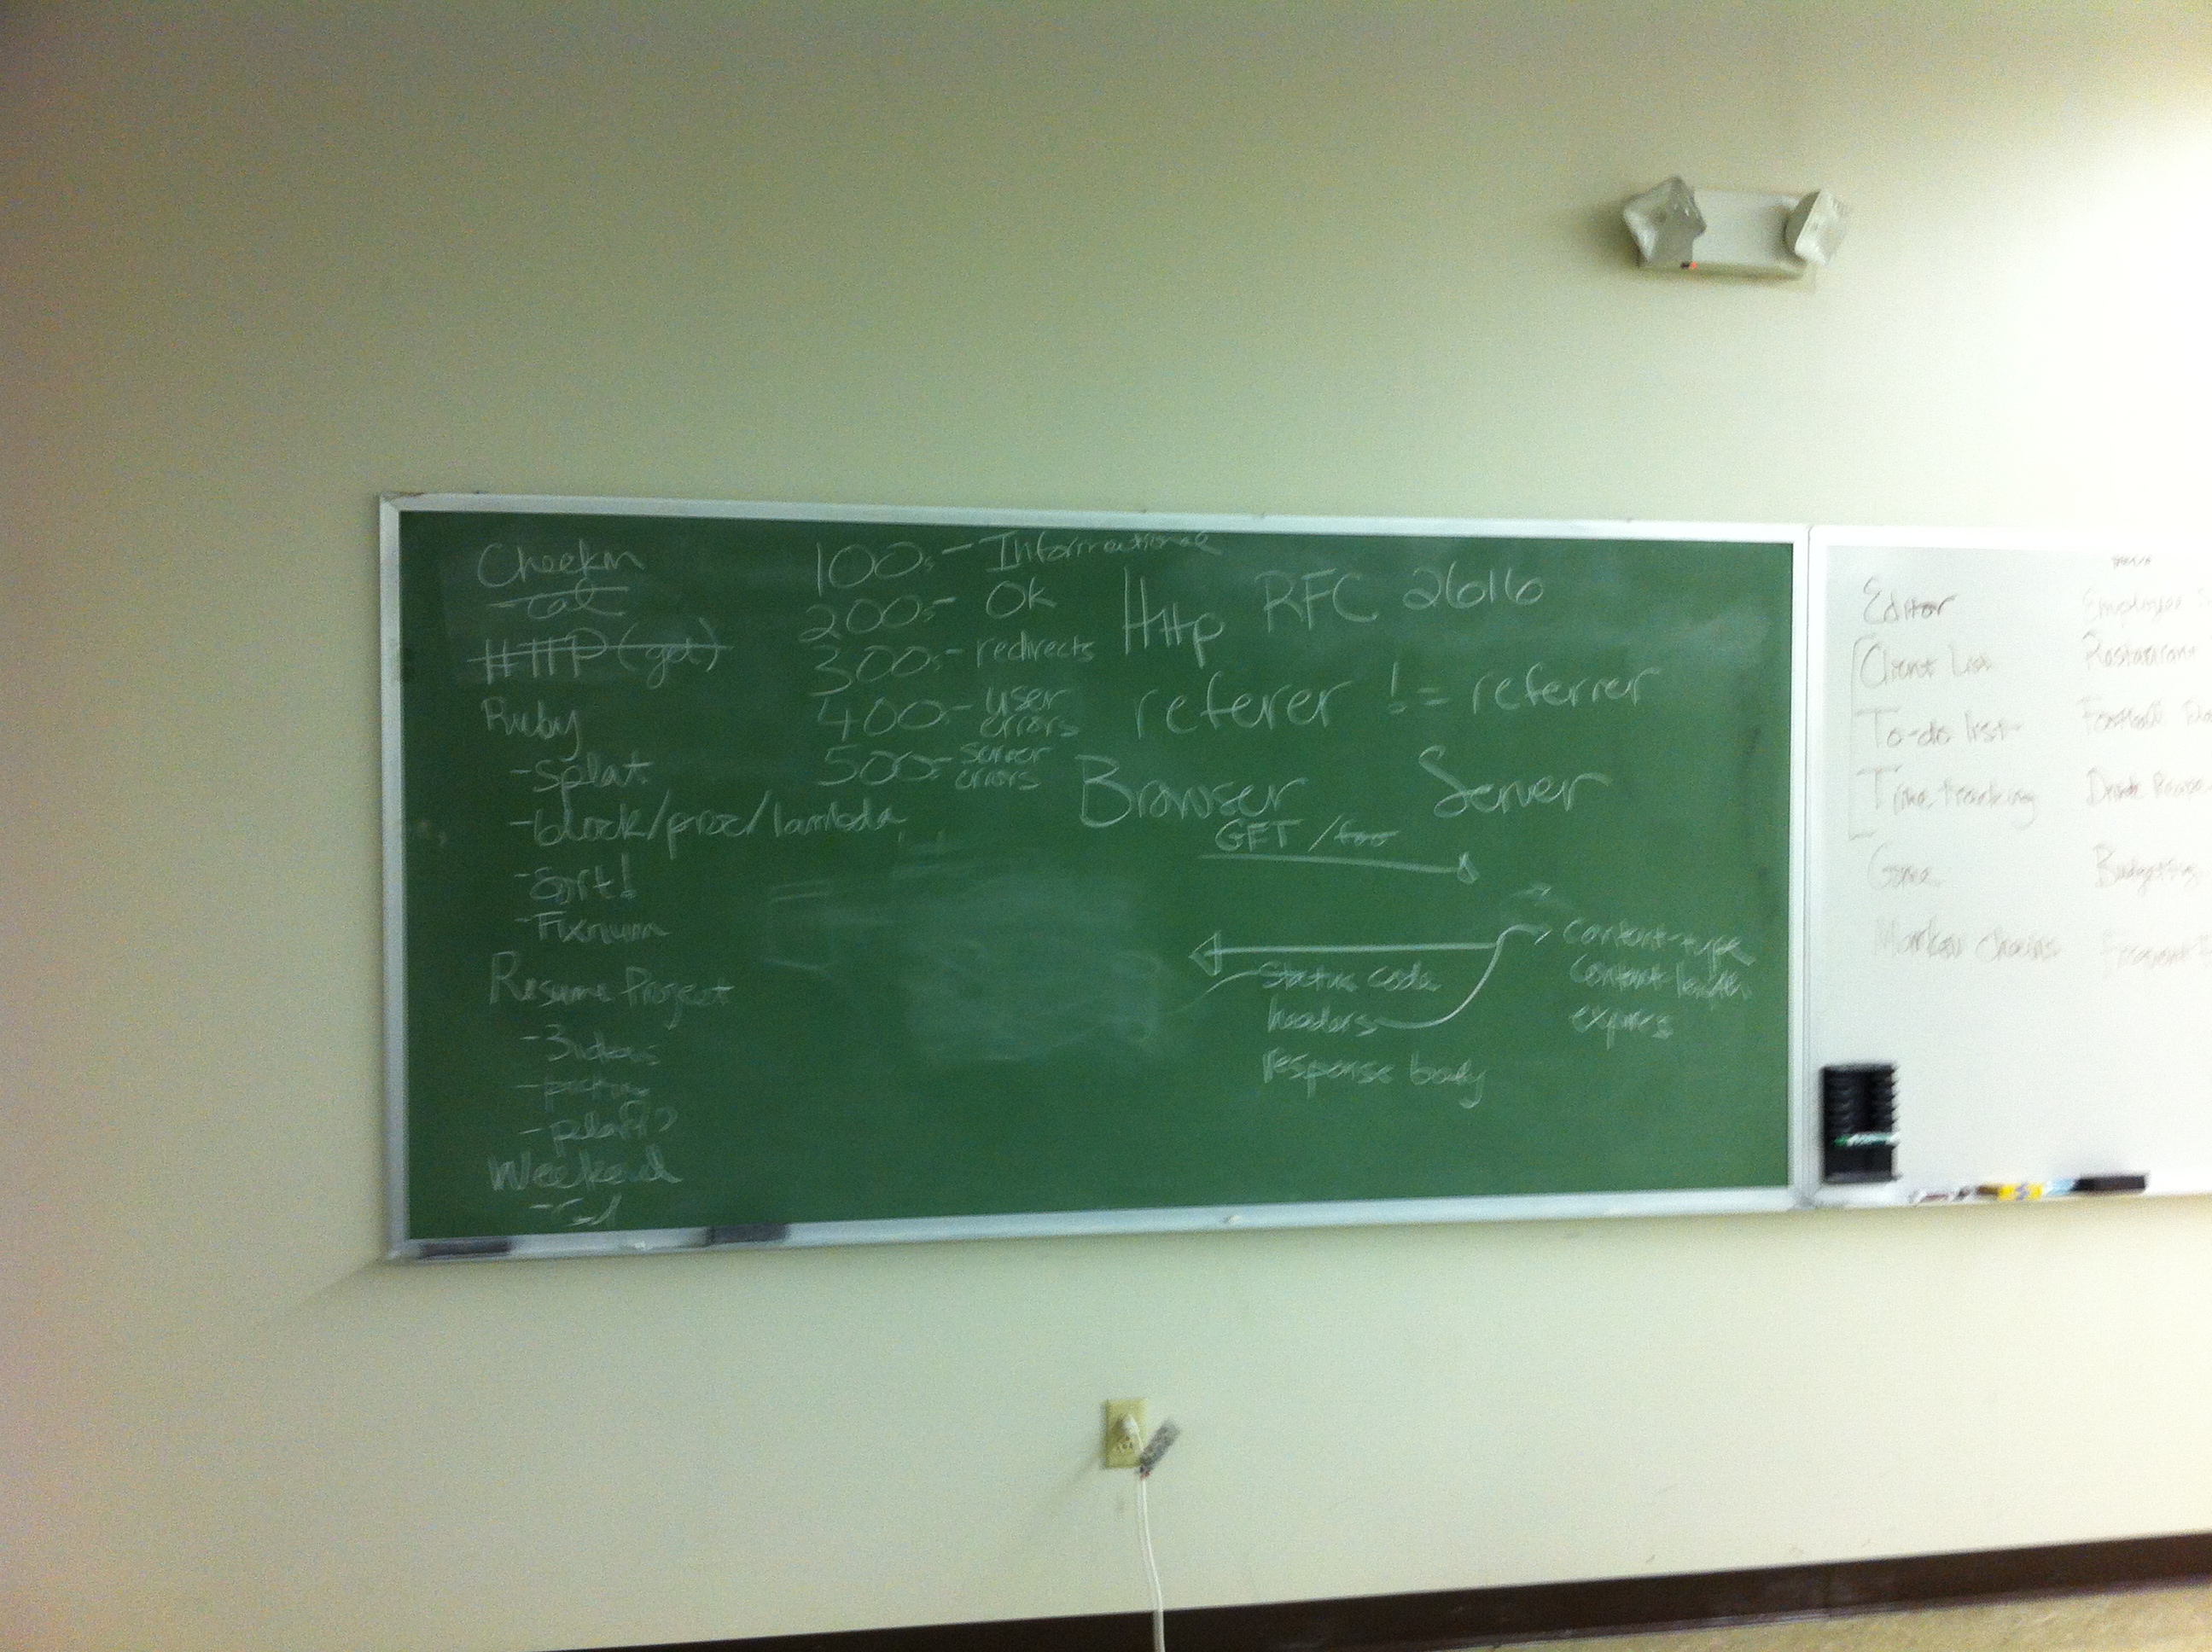 Checkin
HTTP (get)
Ruby
- splat
- block/proc/lambda
- Sort!
- Fixnum
Resume Project
Weekend
100s - Informational
200s - Ok
300s - redirects
400s - user
errors
500s - server
errors
Http RFC 2616
referer != referrer
Browser Server
GET /foo
Status code
headers
response body
content-type
content length
expires
Editor
Client List
To-do list
Time tracking
Game
Markov chains
Employee
Restaurant
Football
Drink
Budgeting